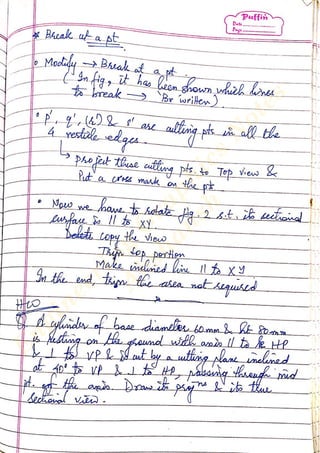 Puffin
Date
Page
* Break at a pt.
• Modify → Break at a pt
(In fig, it has been shown which lines
to break → 'Br written)
• p', q', (r') & s' are cutting pts in all the
4 verticle edges.
↳ project these cutting pts. to Top view &
Put a cross mark on the pt
• Now we have to rotate fig. 2 s.t. its sectional
surface is || to XY
Delete copy the view
Trim top portion
Make inclined line || to XY
In the end, trim the area not required
H/W
Q A cylinder of base diameter 60mm & ht 80mm
is resting on the ground with axis || to HP
& ⊥ to VP & is cut by a cutting plane inclined
at 40° to VP & ⊥ to HP, passing through mid
pt. of the axis. Draw its proj^ns & its true
sectional view.